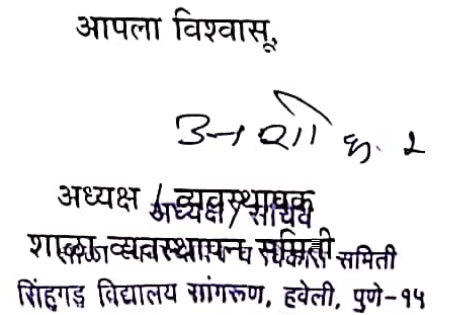 आपला विश्वासू,
अध्यक्ष / व्यवस्थापक
अध्यक्ष / सचिव
शाळा व्यवस्थापन समिती
समिती
सिंहगड विद्यालय सांगरुण, हवेली, पुणे-१५